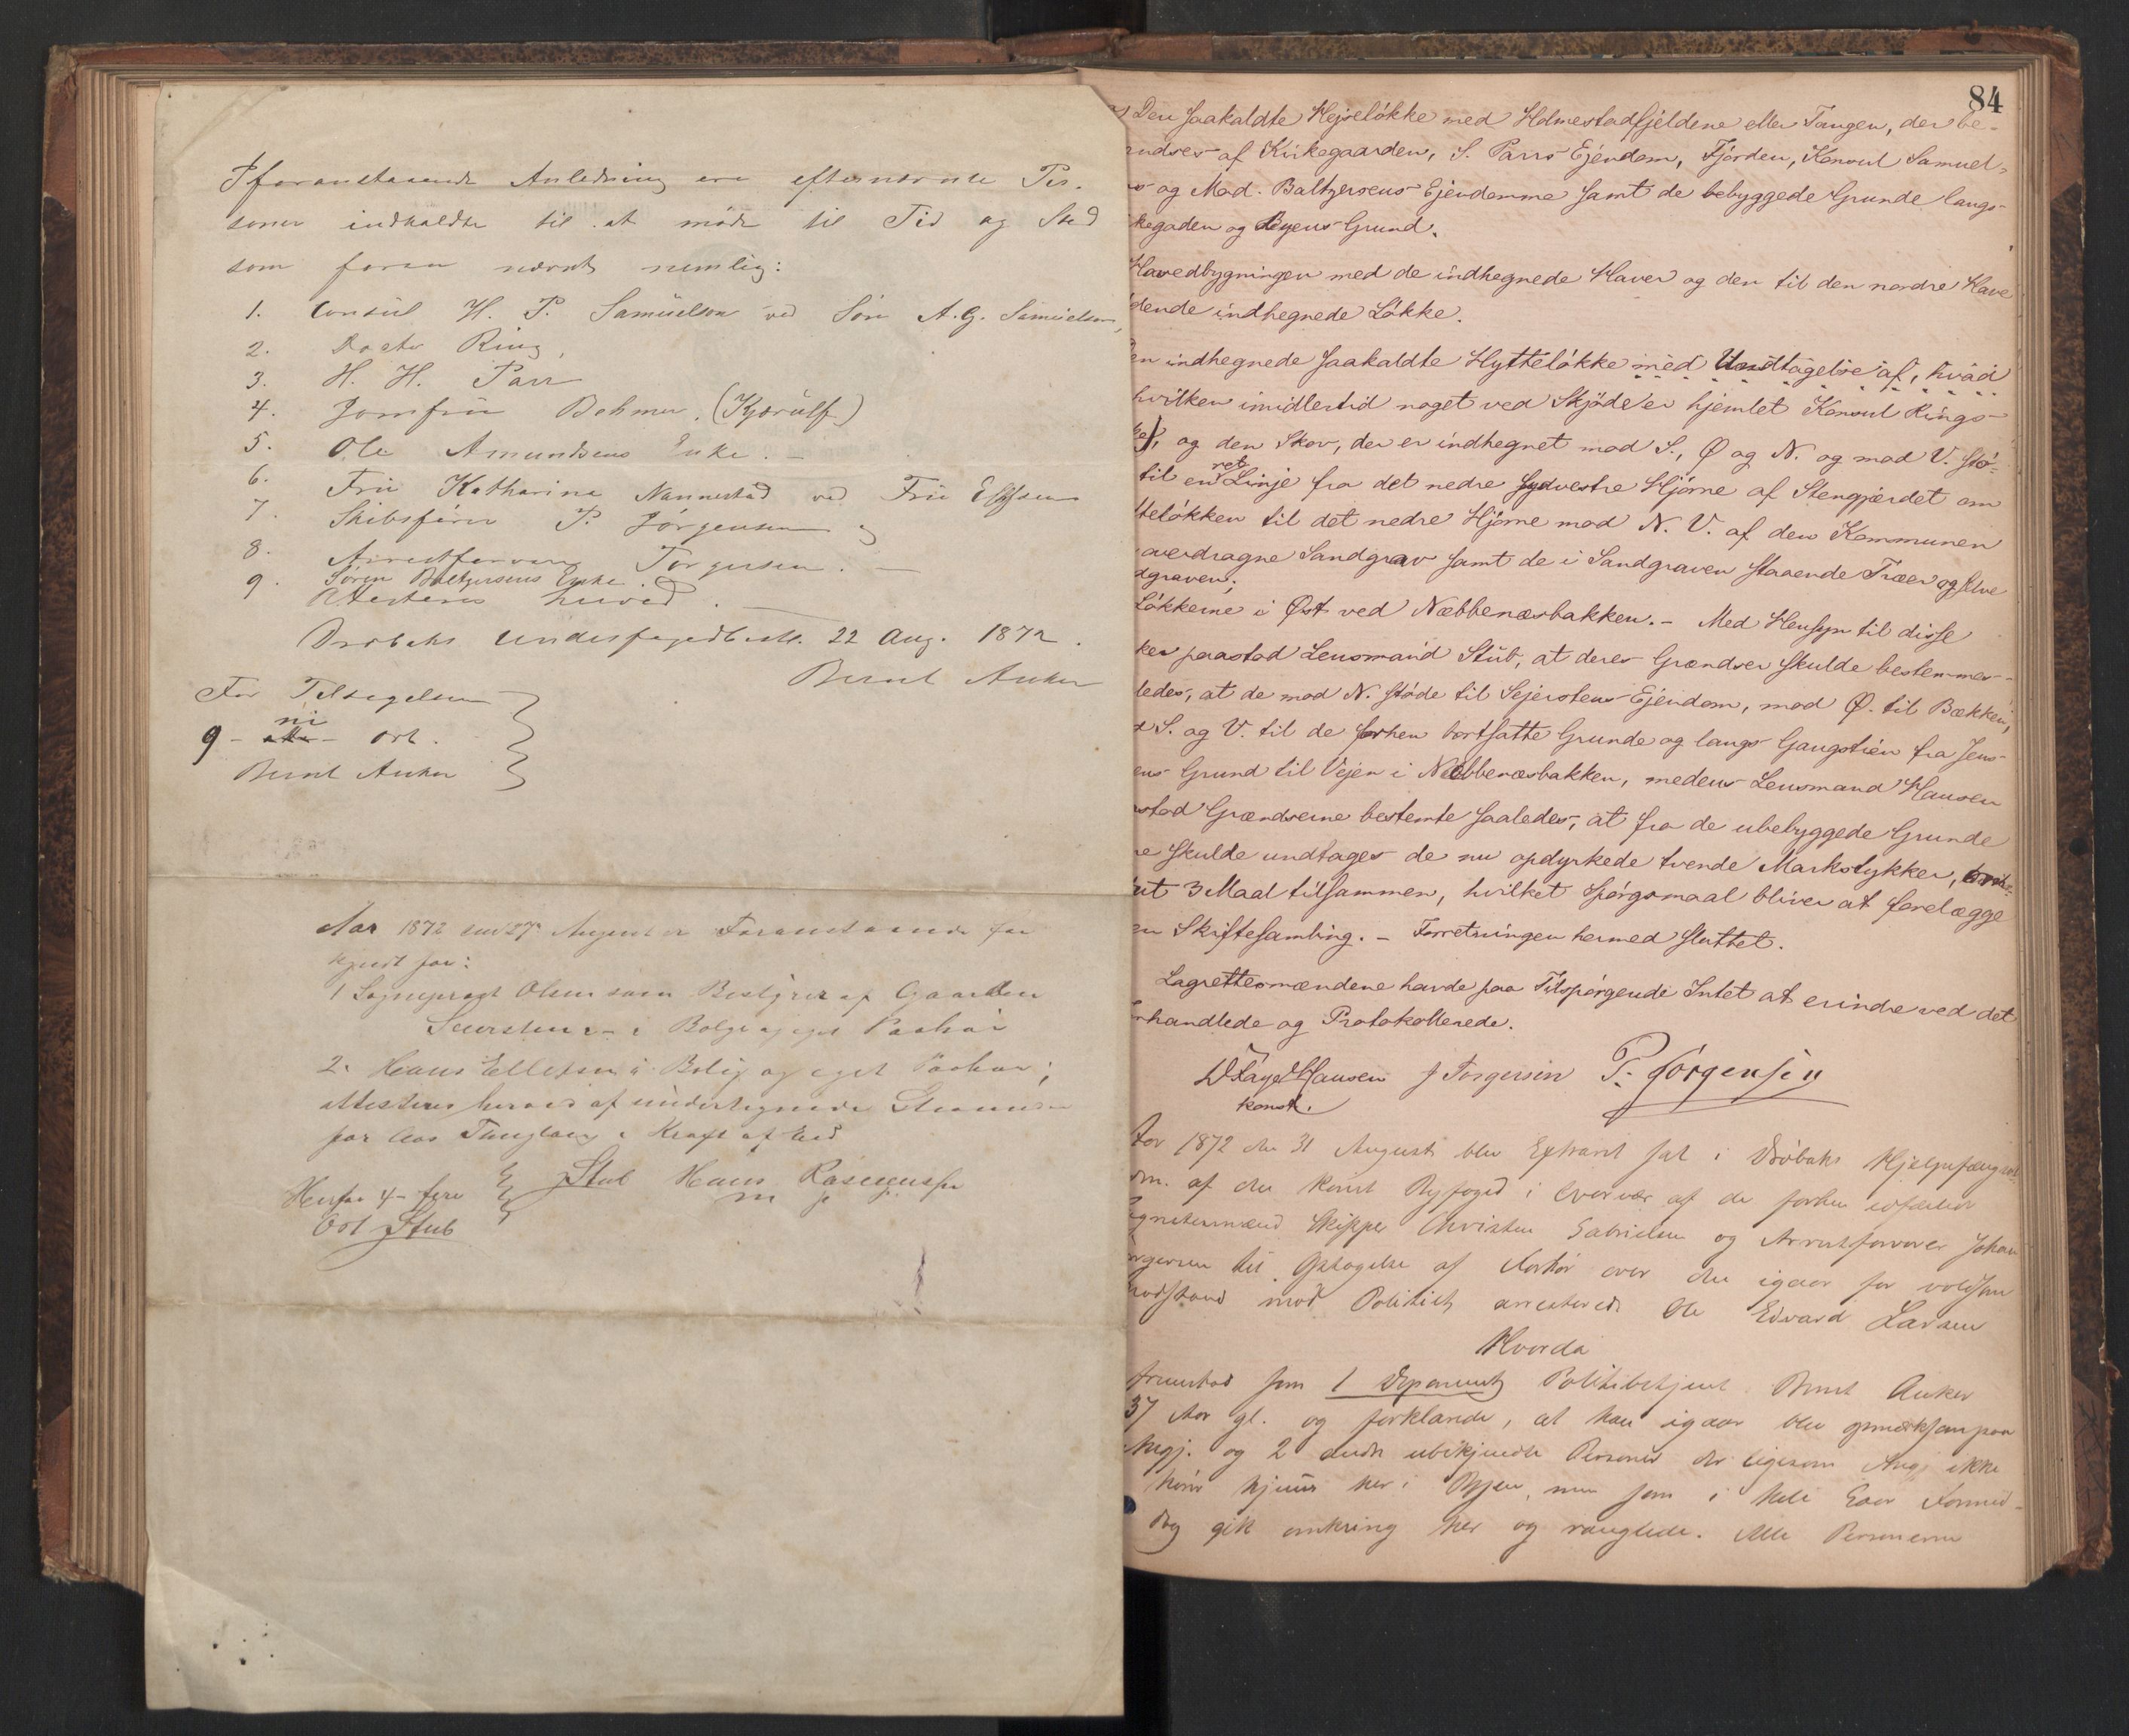 I foranstaaende Anledning ere efternævnte Per-
soner indkaldte til at møde til Tid og Sted
som foran nævnt nemlig:
1. Consul H. P. Samuelson ved Søn A. G. Samuelson,
2. Doctor Ring,
3. H. H. Parr
4. Jomfru Bohmer. (Kjærulf)
5. Ole Amundsens Enke. -
6. Fru Katharina Nannestad ved Fru Ellefsen
7. Skibsfører P. Jørgensen og
8. Arrestforvarer Torgersen. -
9. Søren Baltzersens Enke.
Atesteres herved.
Drøbaks Underfogedbest. 22 Aug. 1872.
Bernt Anker
For Tilsigelsen
ni
9 - otte - ort.
Bernt Anker
Aar 1872 den 27 August er Foranstaaende for
kyndt for:
1 Sogneprest Olsen som Bestyrer af Gaarden
i Bolig og eget Paahør
2. Hans Ellefsen i Bolig og eget Paahør;
attesteres herved af undertegnede
for Aas Thinglaug i Kraft af Eed
Stub Hans Rasmussen
Herfor 4 - fire
Ort Stub
84
Den saakaldte Hejseløkke med Holmestadfjeldene eller Tangen, der be-
ndses af Kirkegaarden, S. Parrs Ejendom, Fjorden, Konsul Samuel-
s og Mad. Baltzersens Ejendomme samt de bebyggede Grunde langs-
kegaden og Byens Grund.
Hovedbygningen med de indhegnede Haver og den til den nordre Have
dende indhegnede Løkke.
en indhegnede saakaldte Hytteløkke med Undtagelse af, hvad
hvilken imidlertid noget ved Skjøde er hjemlet Konsul Rings
ke), og den Skov, der er indhegnet mod S., Ø og N. og mod V. stø-
ret
til en Linje fra det nedre sydvestre Hjørne af Stengjerdet om
tteløkken til det nedre Hjørne mod N. V. af den Kommunen
overdragne Sandgrav samt de i Sandgraven staaende Træer og selve
dgraven;
Løkkerne i Øst ved Næbbenæsbakken. - Med Hensyn til disse
ker paastod Lensmand Stub, at deres Grændser skulde bestemmes
ledes, at de mod N. støde til Sejerstens Ejendom, mod Ø. til Bækken,
d S. og V. til de forhen bortsatte Grunde og langs Gangstien fra Jens-
ens Grund til Vejen i Nebbenæsbakken, medens Lensmand Hansen
stod Grændserne bestemte saaledes, at fra de ubebyggede Grunde
e skulde undtages de nu opdyrkede tvende Markstykker,
nt 3 Maal tilsammen, hvilket Spørgsmaal bliver at forelægge
en Skiftesamling. - Forretningen hermed sluttet.
Lagrettesmændene havde paa Tilspørgende Intet at erindre ved det
rhandlede og Protokollerede.
Hansen J Torgersen P. Jørgensen
konst.
Aar 1872 den 31 August blev Extraret sat i Drøbaks Hjelpefængsel
af den konst Byfoged i Overvær af de forhen edfæstede
Skipper Christen Gabrielsen og Arrestforvarer Johan
orgersen til Optagelse af Forhør over den igaar for voldsom
modstand mod Politiet arresterede Ole Edvard Larsen
Hvorda
fremstod som 1 Deponent Politibetjent Bernt Anker
37 Aar gl. og forklarede, at han igaar blev opmærksom paa
Angj. og 2 andre ubekjendte Personer der ligesom Angj ikke
hører hjemme her i Byen, men som i hele Gaar Formid-
dag gik omkring her og ranglede. Alle Personerne